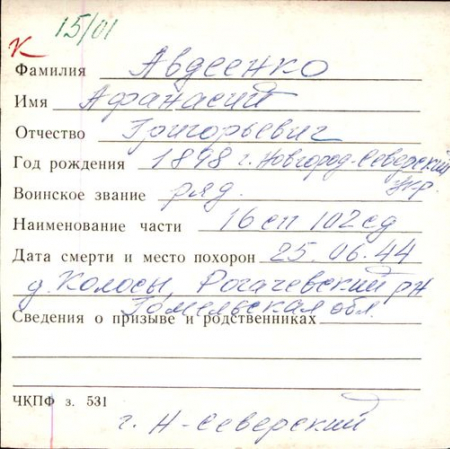 15/01
к
Фамилия Авдеенко
Имя Афанасий
Отчество Григорьевич
Год рождения 1898 г. Новгород-Северский
укр.
Воинское звание ряд.
Наименование части 16 сп 102 сд
Дата смерти и место похорон 25.06.44
д. Колосы, Рогачевский р-н
Гомельская обл.
Сведения о призыве и родственниках
ЧКПФ з. 531
г. Н-Северский